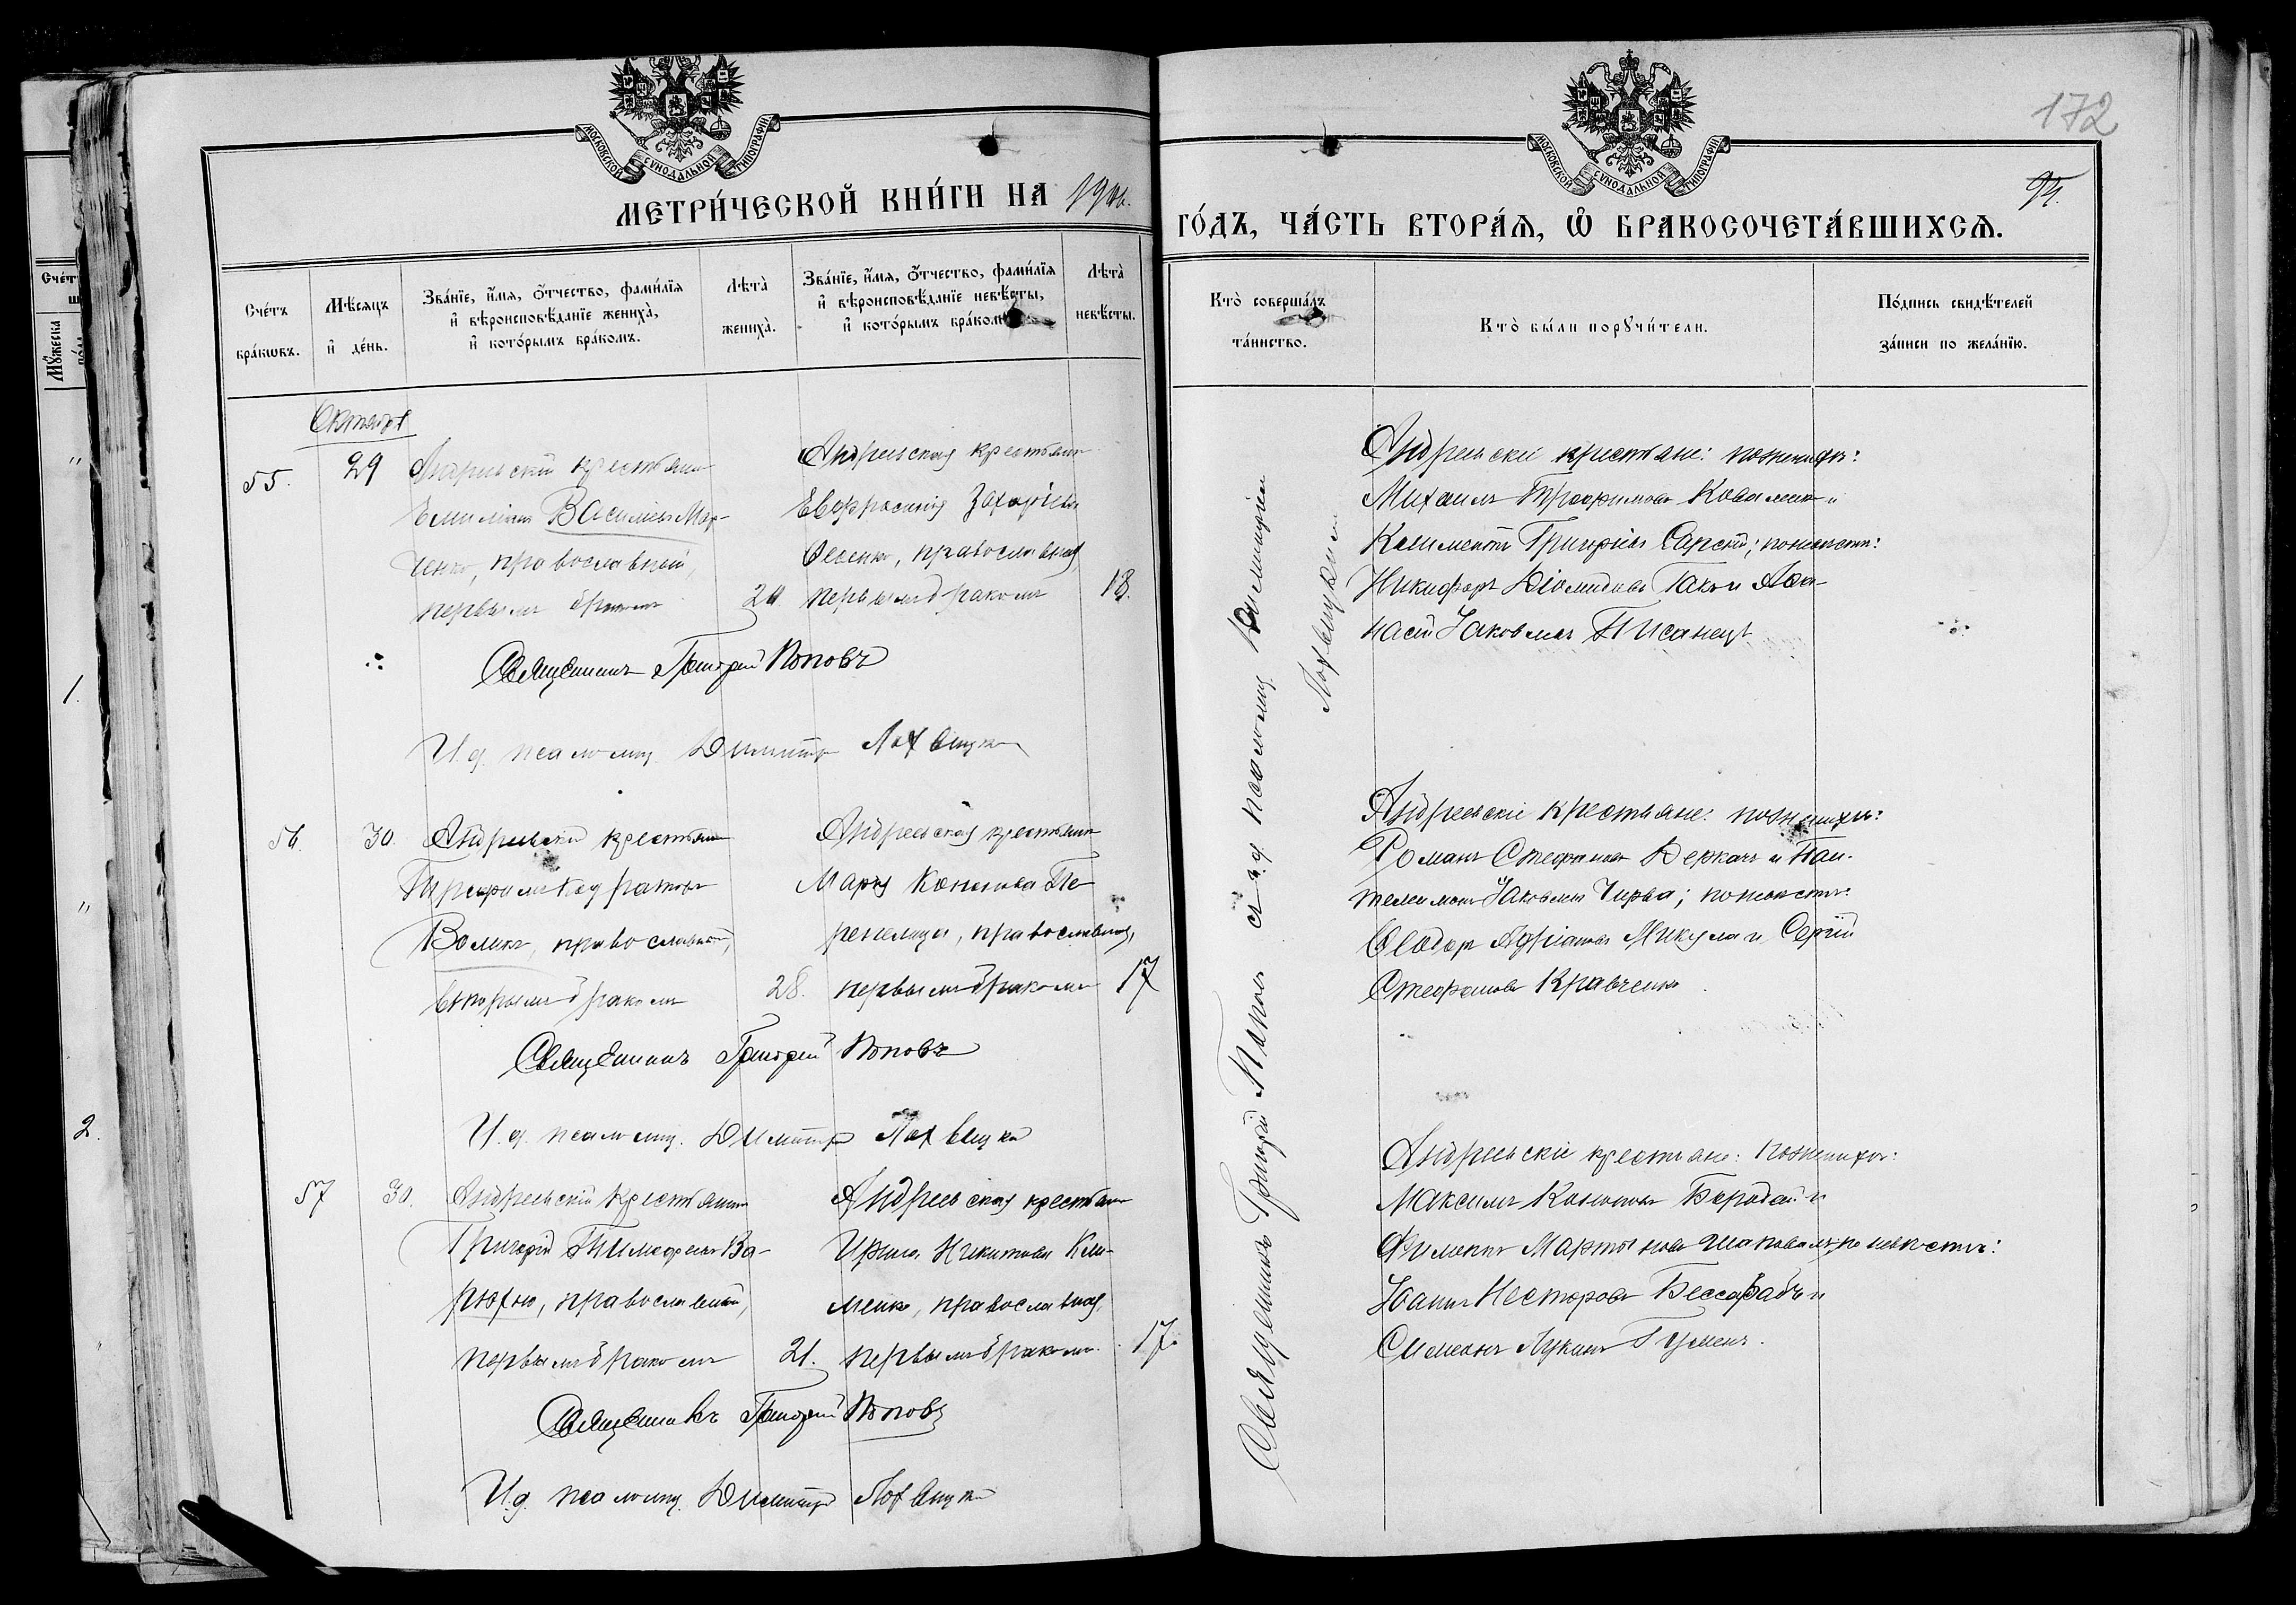 172
МОСКОВСКОЙ СѴНОДАЛЬНОЙ ТИПОГРАФІИ
МОСКОВСКОЙ СѴНОДАЛЬНОЙ ТИПОГРАФІИ
МЕТРИ́ЧЕСКОЙ КНИ́ГИ НА
ГО́ДЪ, ЧА́СТЬ ВТОРА́Я, Ѡ҆ БРАКОСОЧЕТА́ВШИХСЯ.
Сче́тъ
бра́кѡвъ.
Мѣ́сяцъ
и҆ де́нь.
Зва́нїе, и҆́мя, ѻ҆́тчество, фами́лїя
и҆ вѣроисповѣ́данїе жениха̀,
и҆ кото́рымъ бра́комъ.
Лѣта̀
жениха̀.
Зва́нїе, и҆́мя, ѻ҆́тчество, фами́лїя
и҆ вѣроисповѣ́данїе невѣ́сты,
и҆ кото́рымъ бра́комъ
Лѣта̀
невѣ́сты.
Кто̀ соверша́лъ
та́инство.
Кто̀ бы́ли порꙋчи́тели.
По́дпись свидѣ́телей
за́писи по жела́нїю.
Октябрь
55.
29
крестьянин
Емиліанъ Василіевъ Мар-
ченко, православный,
первымъ бракомъ
24
Андреевская крестьянк
Евфросинія Захаріева
православная,
первымъ бракомъ
18.
Андреевскіе крестьяне: по женихѣ:
Михаилъ Трофимовъ Коваленко и
Климентъ Григоріевъ Сарскій; по невѣстѣ:
Никифоръ Діомидовъ Гакъ и Аѳа-
насій Іаковлевъ Писанецъ
Священникъ Григорій Поповъ
И. д. псаломщ. Димитрій
56
30.
Андреевскій крестьянин
Трофимъ Кодратовъ
Воликъ, православный,
вторымъ бракомъ
28.
Андреевская крестьянк
Марія Кононова Пе-
репелица, православная,
первымъ бракомъ
17
Андреевскіе крестьяне: по женихѣ:
Романъ Стефановъ Деркачъ и Пан-
телеимонъ Іаковлевъ Чирва; по невѣстѣ:
Ѳеодоръ Адріановъ Микула и Сергій
Стефановъ Кравченко
Священникъ Григорій Поповъ
И. д. псаломщ. Димитрій
57
30.
Андреевскій крестьянин
Григорій Тимофеевъ Ва-
рюхно, православный,
первымъ бракомъ
21.
Андреевская крестьянк
Ирина Никитова Кли-
менко, православная,
первымъ бракомъ
17.
Андреевскіе крестьяне: по женихѣ:
Максимъ Кононовъ Бородай и
Филиппъ Мартыновъ Шаповалъ; по невѣстѣ:
Іоаннъ Несторовъ Бессарабъ и
Симеонъ Лукинъ Гуменъ.
Священникъ Григорій Поповъ
И. д. псаломщ. Димитрій
Священникъ Григорій Поповъ съ и. д. псаломщ. Димитріемъ
1.
2.